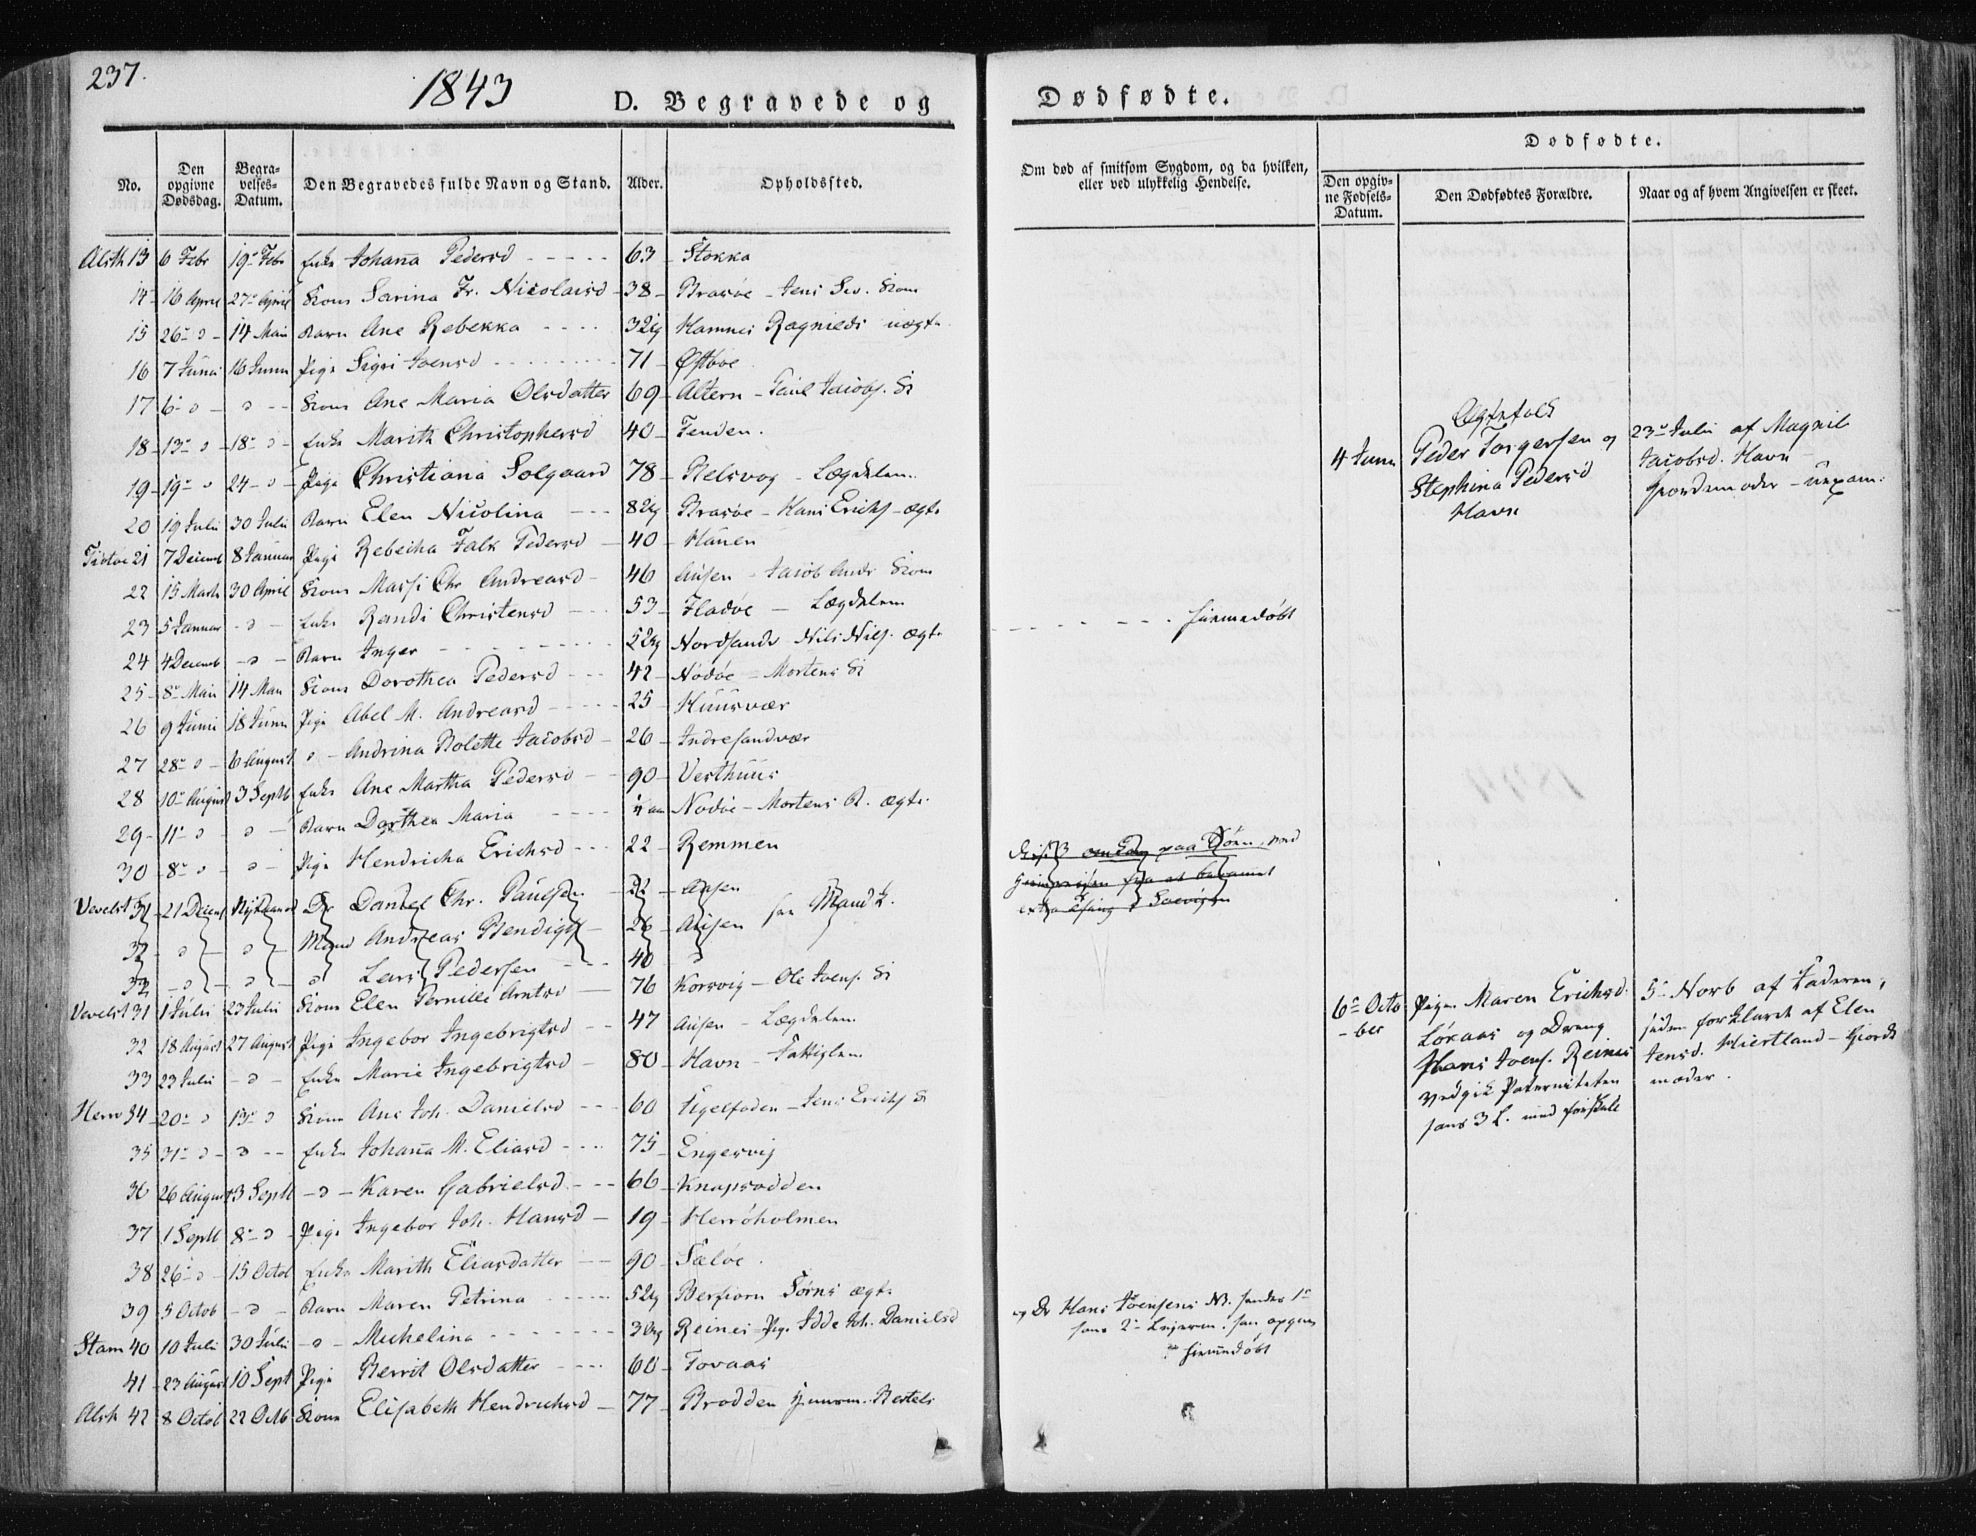 237.
1843
D. Begravede og
Dødfødte.
No.
Den opgivne Dødsdag.
Begravelses-Datum.
Den Begravedes fulde Navn og Stand.
Alder.
Opholdssted.
Om død af smitsom Sygdom, og da hvilken, eller ved ulykkelig Hendelse.
Dødfødte.
Den opgivne Fødsels-Datum.
Den Dødfødtes Forældre.
Naar og af hvem Angivelsen er skeet.
Alsth 13 6 Febr 19 Febr Enke Johanna Pedersd 63 Stokka
14 16 April 27 April Kone Sarina Fr. Nicolaisd 38 Brasøe - Jens Kone
15 26 d 14 Mai Barn Ane Rebekka 32 Hamnes Ragnieds uægt
16 7 Juni 16 Juni Pige Sigri Joensd 71 Østboe
17 6 d d Kone Ane Maria Olsdatter 69 Altern - Paul Jacobs. K
18 13 d 18 d Enke Marith Christophersd 40 Tenden.
19 19 d 24 d Pige Christiana Solgaard 78 Belsvog - Lægdslem
20 19 Juli 30 Juli Barn Elen Nicolina 82 Brasøe - Hans Erichs ægt
Tiøtøe 21 7 Decemb 8 Januar Pige Rebecha Falk Pedersd 40 Hauen
22 15 Marts 30 April Kone Massi Chr Andreasd 46 Ausen - Jacob Andr Kone
23 5 Januar d Enke Randi Christensd 53 Fladøe - Lægdslem
24 4 Decemb d Barn Inger 52 Nordsande Nils Nils. ægt hiemmedøbt
25 8 Mai 14 Mai Kone Dorothea Pedersd 42 Nodøe - Mortens K
26 9 Juni 18 Juni Pige Abel M. Andreasd 25 Huusvær
27 28 d 6 August d Andrina Bolette Jacobsd 26 Indresandvær
28 10 August 3 Septb Enke Ane Martha Pedersd 90 Vesthuus
29 11 d d Barn Dorthea Maria Nodøe - Mortens B. ægt.
30 8 d d Pige Hendricha Erichsd 22 Remmen
Vevelst 31 21 Decemb Dr Daniel Chr. Paulsen 22 Ausen
32 d d Mand Andreas Bendigs 26 Ausen
33 d d d Lars Pedersen 40 d
paa Søen, ved
Vevelst 31 1 Juli 23 Juli Kone Elen Pernille Arntsd 76 Korsvig - Ole Joens. K
32 18 August 27 August Pige Ingebor Ingebrigtsd 47 Ausen - Lægdslem
33 23 Juli d Enke Marie Ingebrigtsd 80 Havn - Fattiglem
Herrø 34 20 d 13 d Kone Ane Joh. Danielsd 60 Tigelfaden - Jens Erichs K
35 31 d d Enke Johanna M. Eliasd 75 Engesvig
36 26 August 3 Septb d Karen Gabrielsd 66 Knapsodden
37 1 Septb 8 d Pige Ingebor Joh. Hansd 19 Herrøholmen
38 26 d 15 Octob Enke Marith Eliasdatter 90 Sæløe.
39 5 Octob d Barn Maren Petrina 52 Berfiorn Sørns ægt
Stam 40 10 Juli 30 Juli d Michelina 3 Reines - Pige Idde Joh. Danielsd
og Dr Hans Joensens hiemmedøbt
41 23 August 10 Sept Pige Berrit Olsdatter 60 Tovaas
Alsth 42 8 Octob 22 Octb Kone Elisabeth Hendrichsd 77 Brodden Huusm. Bertels
4 Juni
Ægtefolk
Peder Torgersen og
Stephina Pedersd
Havn
23 Juli af Magnil
Jacobsd. Havn
Giordemoder - uexam.
6 October
Pigen Maren Erichsd.
Løkaas og Dreng
Hans Joens. Reines
Vedgik Paterniteten
5 Novb af Faderen,
siden forklaret af Elen
Jensd. Hiertland - Giorde
moder.